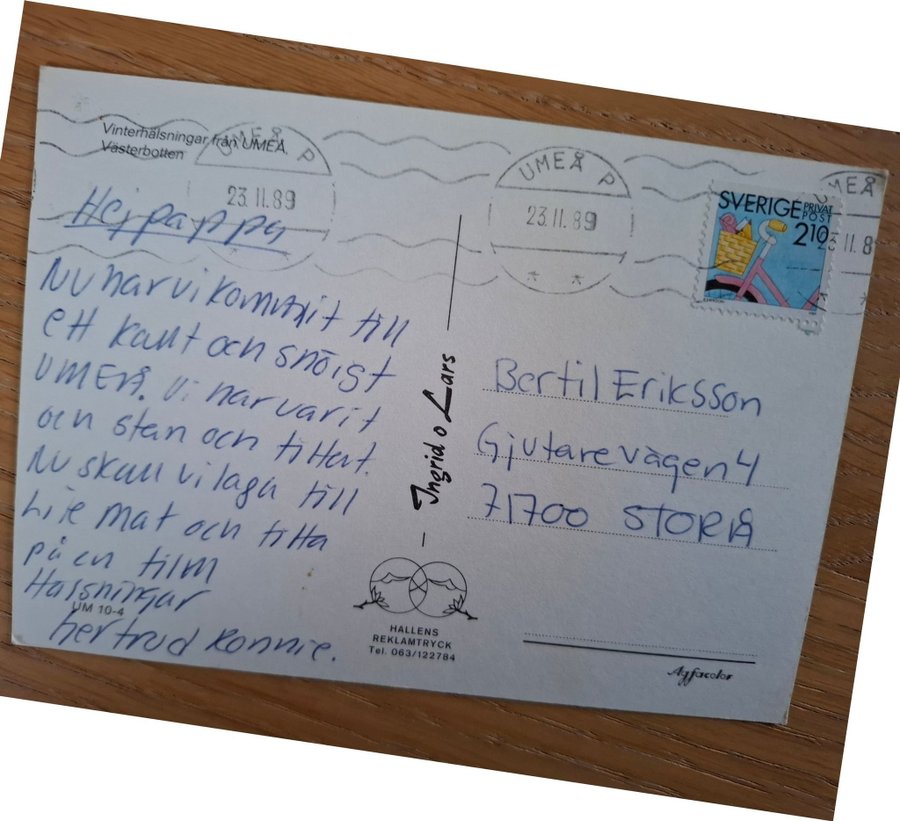 Vinterhälsningar från UMEÅ.
Västerbotten
UMEÅ P
23.11.89
Hej pappa
Nu har vi kommit till
ett kallt och snöigt
UMEÅ. Vi har varit
och stan och tittat.
Nu skall vi laga till
Lite mat och titta
på en film
Hälsningar
Gertrud Ronnie.
UM 10-4
Ingrid o Lars
HALLENS
REKLAMTRYCK
Tel. 063/122784
UMEÅ P
23.11.89
SVERIGE PRIVAT
POST
210
MEÅ
3 11.8
Bertil Eriksson
Gjutarevägen 4
71700 STORÅ
Agfacolor